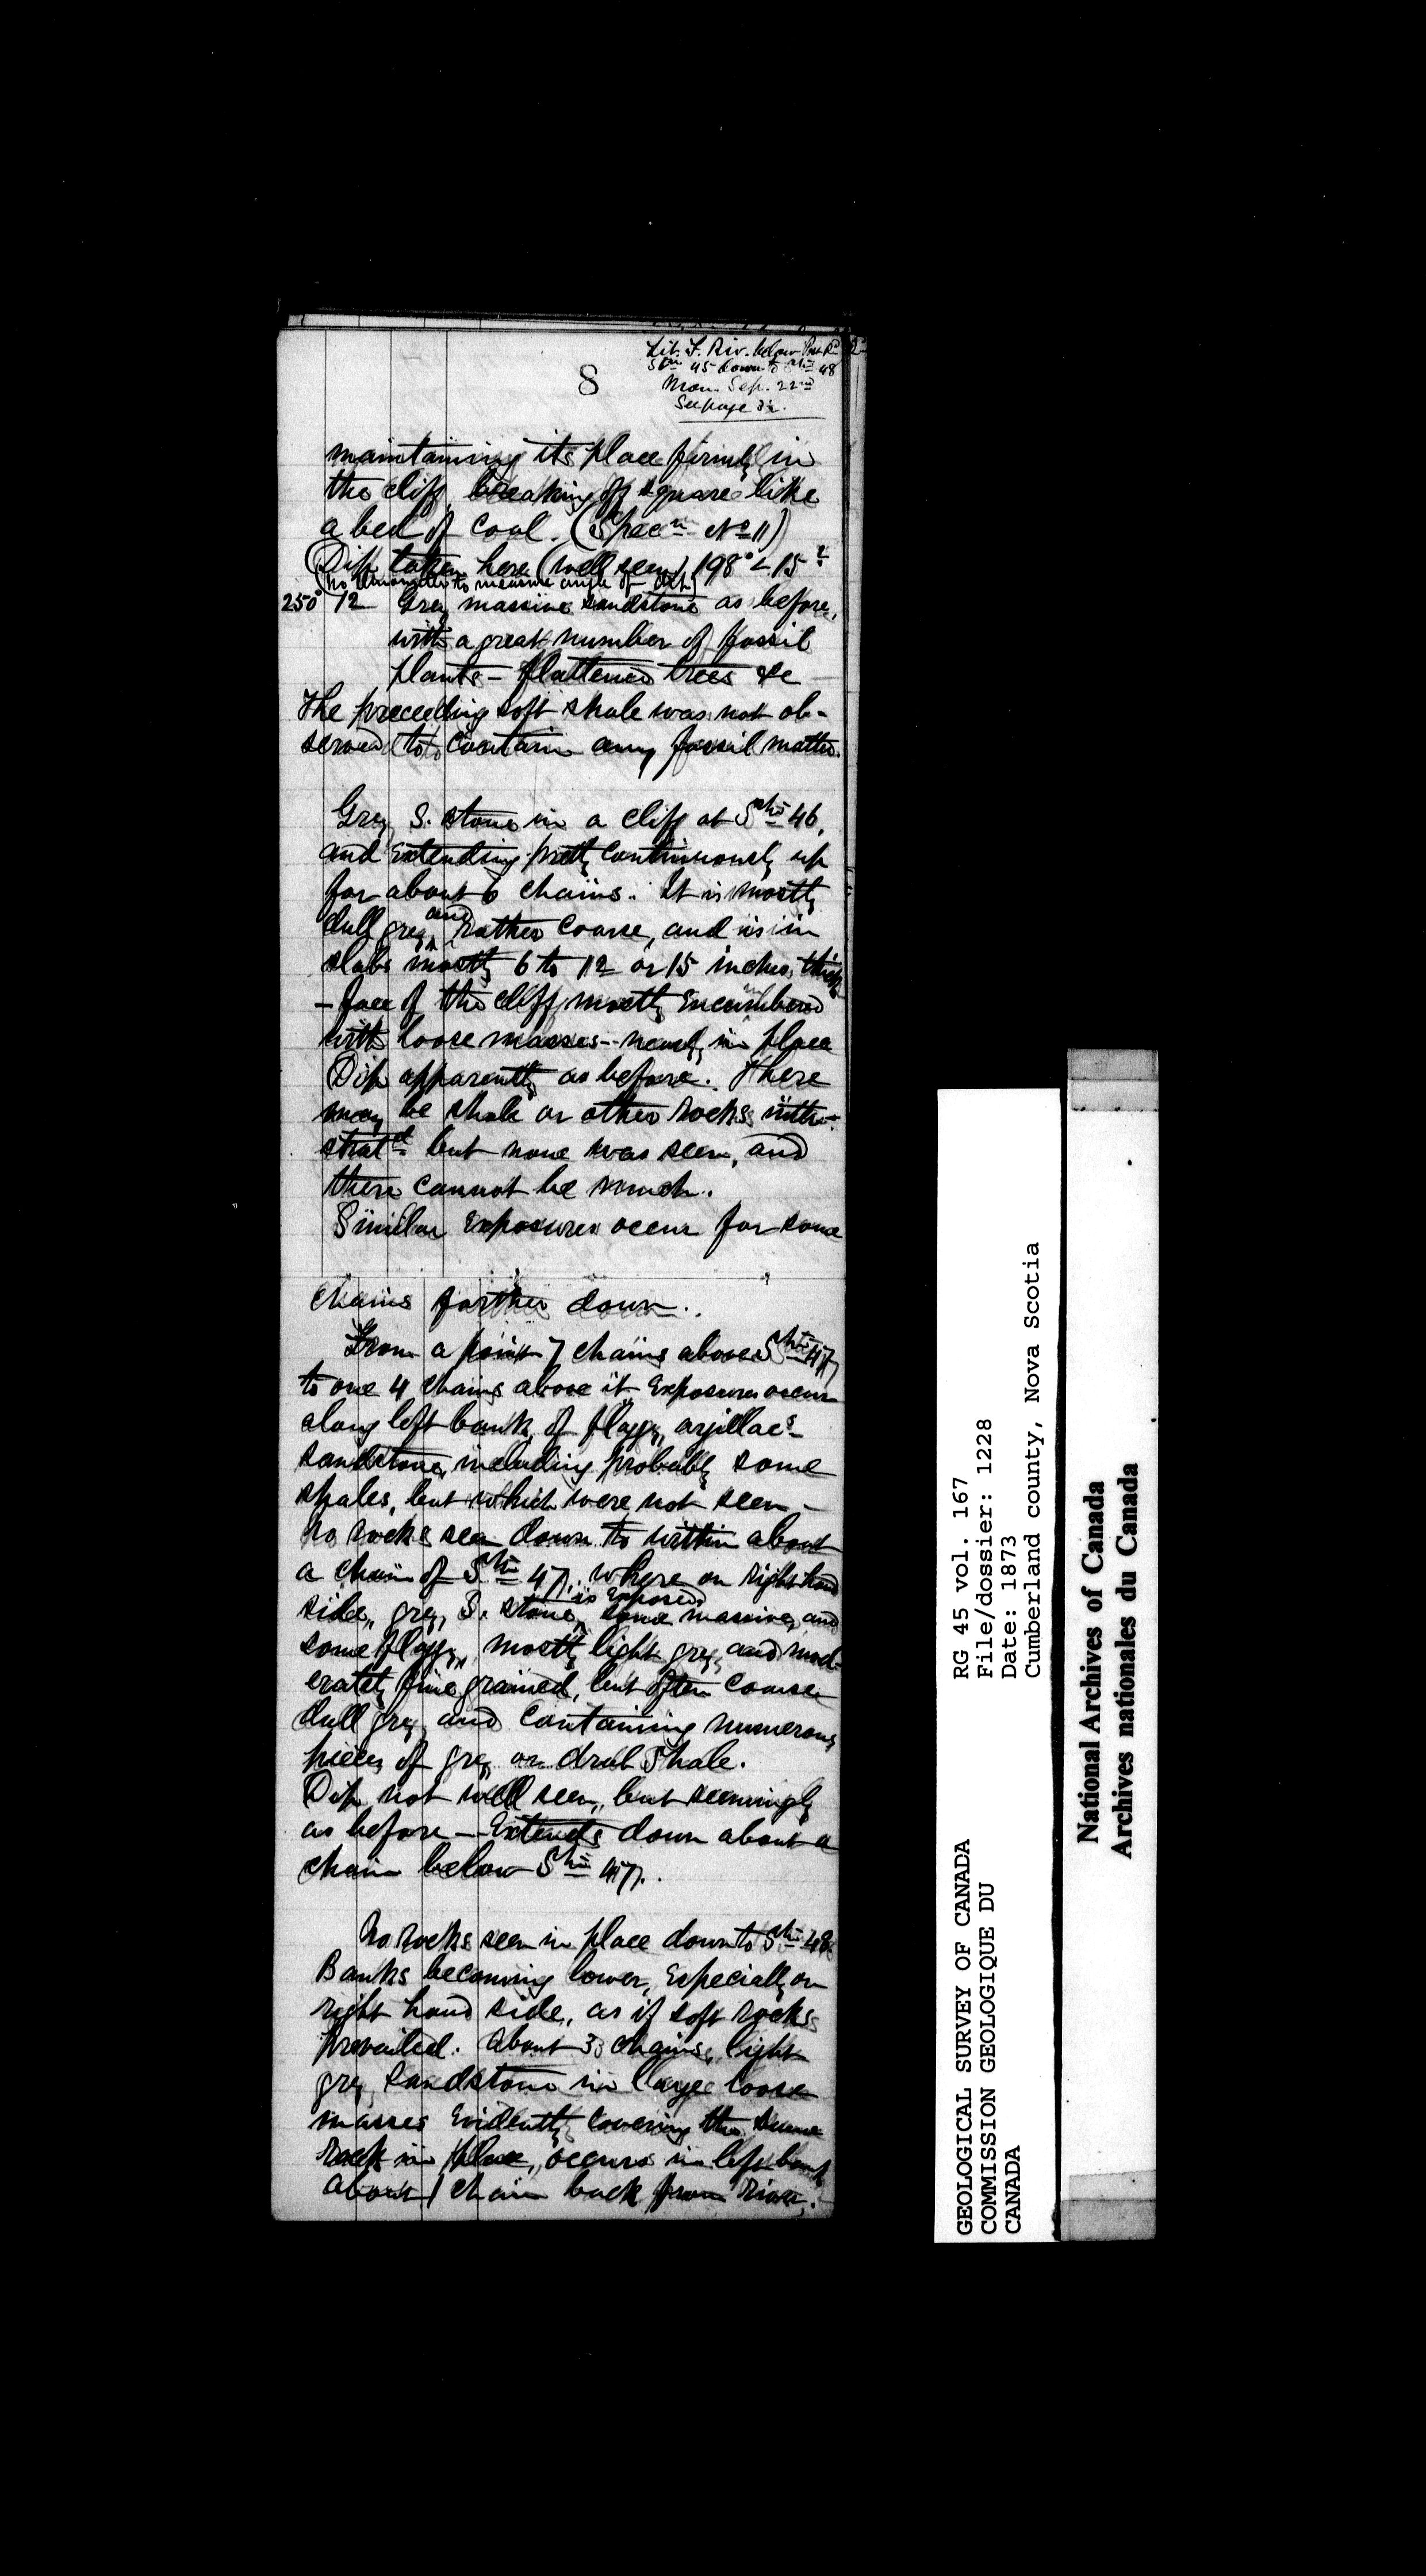 8
Lit. F. Riv. below Post Rd
Stn 45 down to Stn 48
Mon. Sep. 22nd
See page
maintaining its place firmly in
the cliff, breaking off square like
a bed of coal. (Specn No 11)
Dip taken here (well seen) 198° ∠ 15°
(no clinometer to measure angle of dip)
250° 12 Grey massive sandstone as before,
with a great number of fossil
plants - flattened trees &c
The preceeding soft shale was not ob-
served to contain any fossil matter.
Grey S. stone in a cliff at Stn 46,
and extending pretty continuously up
for about 6 chains. It is mostly
dull grey and rather coarse, and is in
slabs mostly 6 to 12 or 15 inches thick
- face of the cliff mostly encumbered
with loose masses - nearly in place
Dip apparently as before. There
may be shale or other rocks inter-
stratd but none was seen, and
there cannot be much.
Similar exposures occur for some
chains farther down.
From a point 7 chains above Stn 47,
to one 4 chains above it exposures occur
along left bank, of flaggy, argillacs
sandstone, including probably some
shales, but which were not seen -
No rocks seen down to within about
a chain of Stn 47, where on right hand
side, grey S. stone, is exposed some massive, and
some flaggy, mostly light grey, and mod-
erately fine grained, but often coarse
dull grey and containing numerous
pieces of grey or drab shale.
Dip not well seen, but seemingly
as before - Extends down about a
chain below Stn 47.
No rocks seen in place down to Stn 48.
Banks becoming lower, especially on
right hand side, as if soft rocks
prevailed. About 3 chains, light
grey sandstone in large loose
masses evidently covering the same
rock in place, occurs in left bank
about 1 chain back from river.
GEOLOGICAL SURVEY OF CANADA
COMMISSION GEOLOGIQUE DU
CANADA
RG 45 vol. 167
File/dossier: 1228
Date: 1873
Cumberland county, Nova Scotia
National Archives of Canada
Archives nationales du Canada